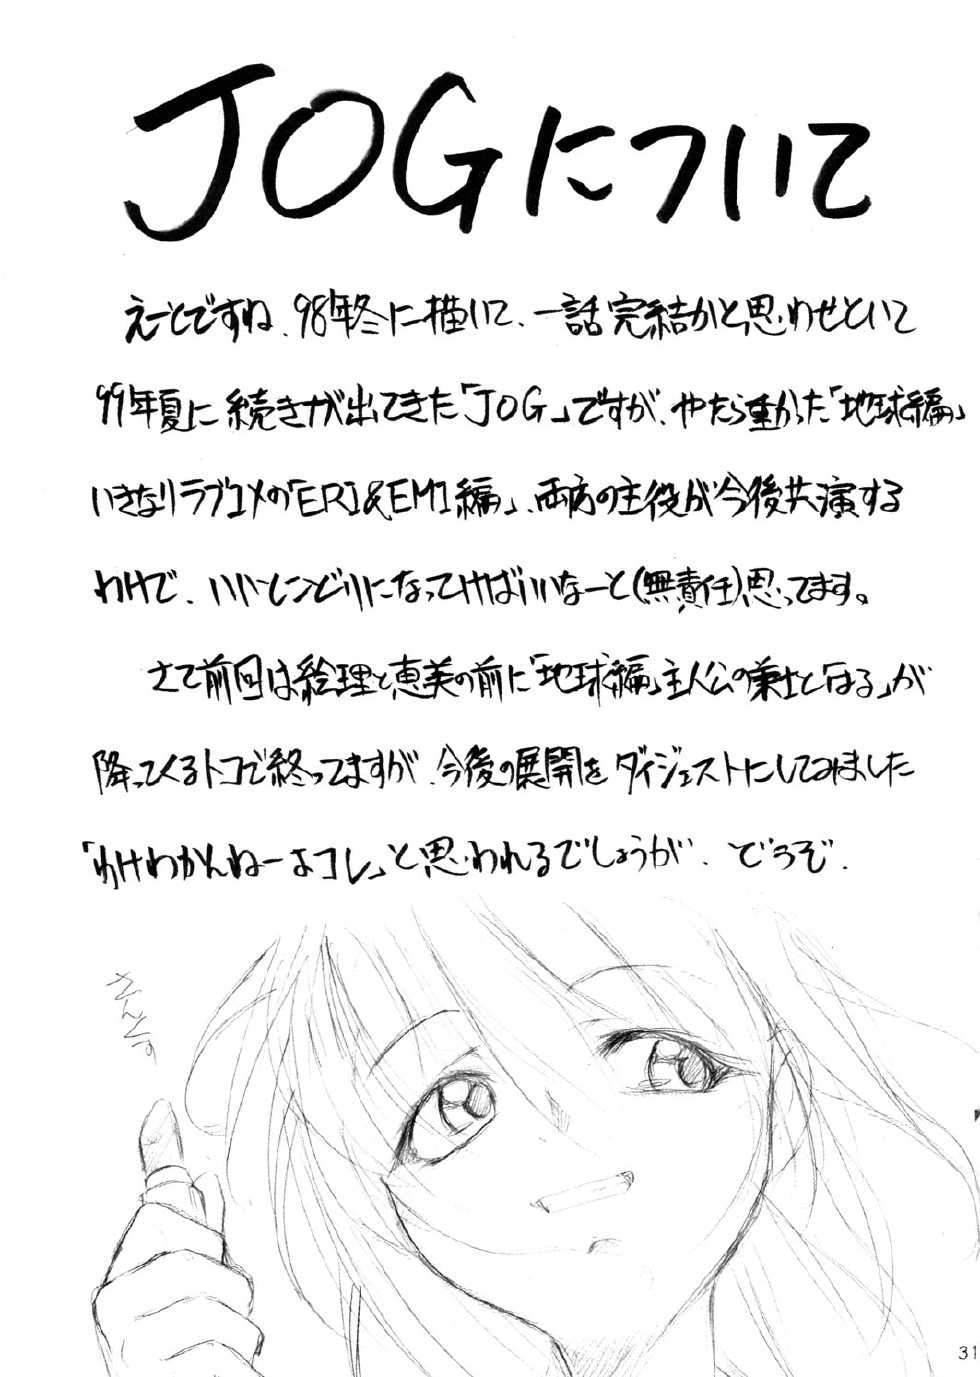 JOGについて
えーとですね、98年冬に描いて、一話完結かと思わせといて
99年夏に続きが出てきた「JOG」ですが、やたら重かった「地球編」
いきなりラブコメの「ERI&EMI編」、両方の主役が今後共演する
わけで、いいとこどりになってければいいなーと(無責任)思ってます。
さて前回は絵理と恵美の前に「地球編」主人公の兼士と「はる」が
降ってくるトコで終ってますが、今後の展開をダイジェストにしてみました
「わけわかんねーよコレ」と思われるでしょうが、どうぞ.
31